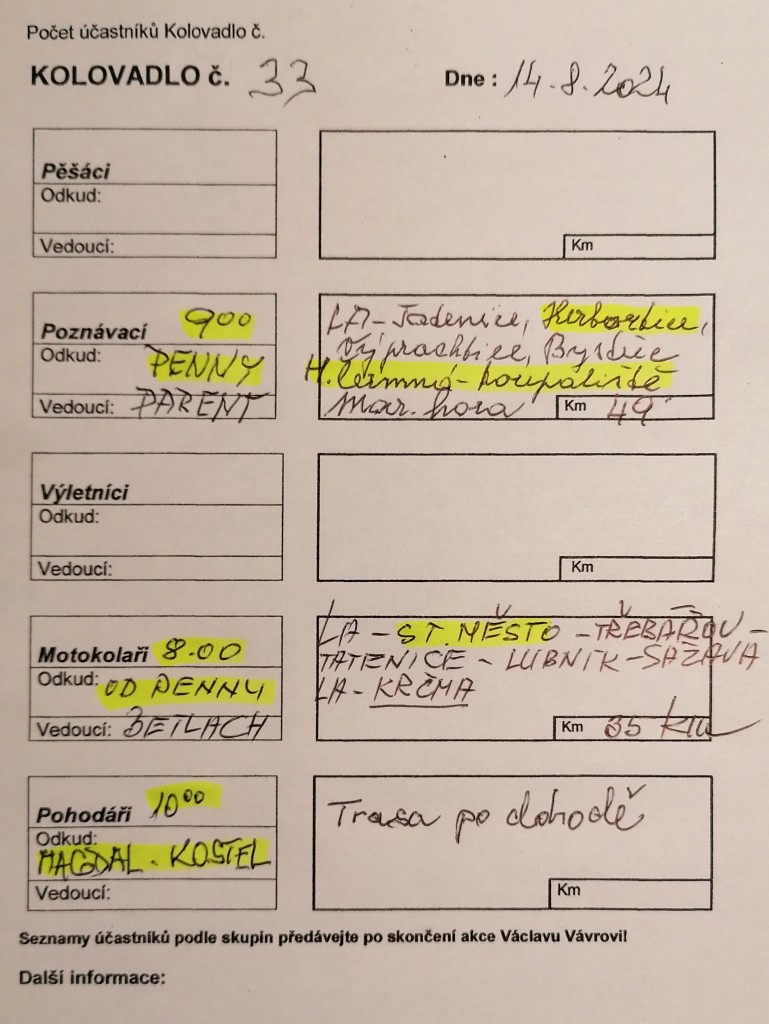 Počet účastníků Kolovadlo č.
KOLOVADLO č. 33 Dne : 14.8.2024
Pěšáci
Odkud:
Vedoucí:
Km
Poznávací 900
Odkud: PENNY
Vedoucí: PARENT
LA - Tatenice, Herbortice,
Výprachtice, Bystřec
H. Čermná - koupaliště
Mar. hora
Km 49
Výletníci
Odkud:
Vedoucí:
Km
Motokolaři 8.00
Odkud: OD PENNY
Vedoucí: BETLACH
LA - ST. MĚSTO - TŘEBAŘOV -
TATENICE - LUBNÍK - SÁZAVA
LA - KRČMA
Km 35 km
Pohodáři 10 00
Odkud:
MAGDAL. KOSTEL
Vedoucí:
Trasa po dohodě
Km
Seznamy účastníků podle skupin předávejte po skončení akce Václavu Vávrovi!
Další informace: